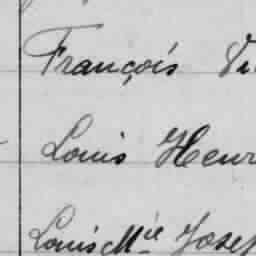 François
Louis Henr
Louis Mie Josep